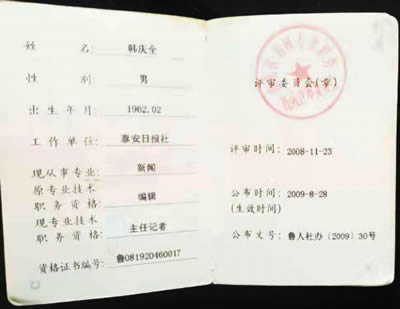 姓 名: 韩庆全
性 别: 男
出生年月: 1962.02
工作单位: 泰安日报社
现从事专业: 新闻
原专业技术
职务资格: 编辑
现专业技术
职务资格: 主任记者
资格证书编号: 鲁081920460017
评审委员会(章)
评审时间: 2008-11-23
公布时间: 2009-8-28
(生效时间)
公布文号: 鲁人社办〔2009〕30号